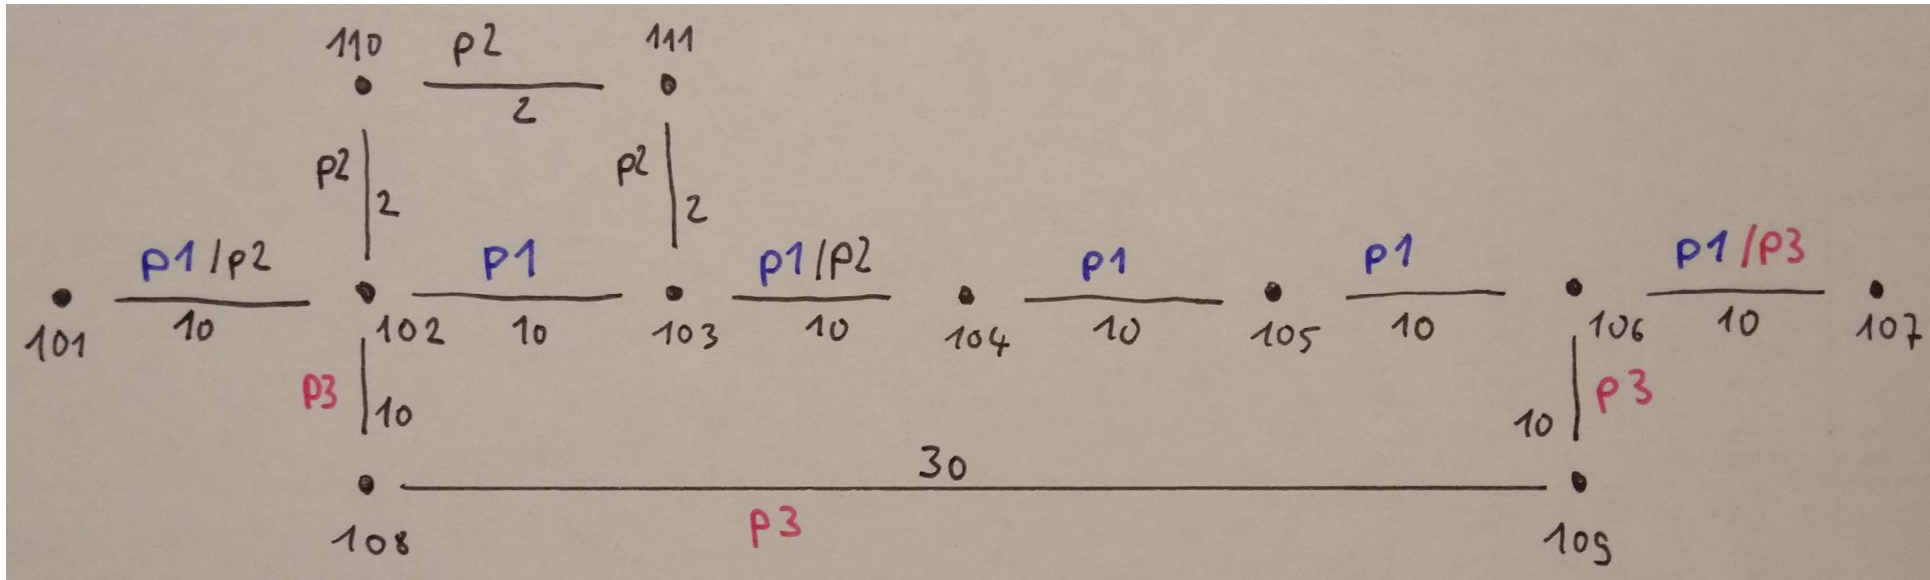 110 p2 111
2
p2 2 p2 2
p1/p2 p1 p1/p2 p1 p1 p1/p3
10 10 10 10 10 10
101 102 103 104 105 106 107
p3 10 10 p3
30
p3
108 109